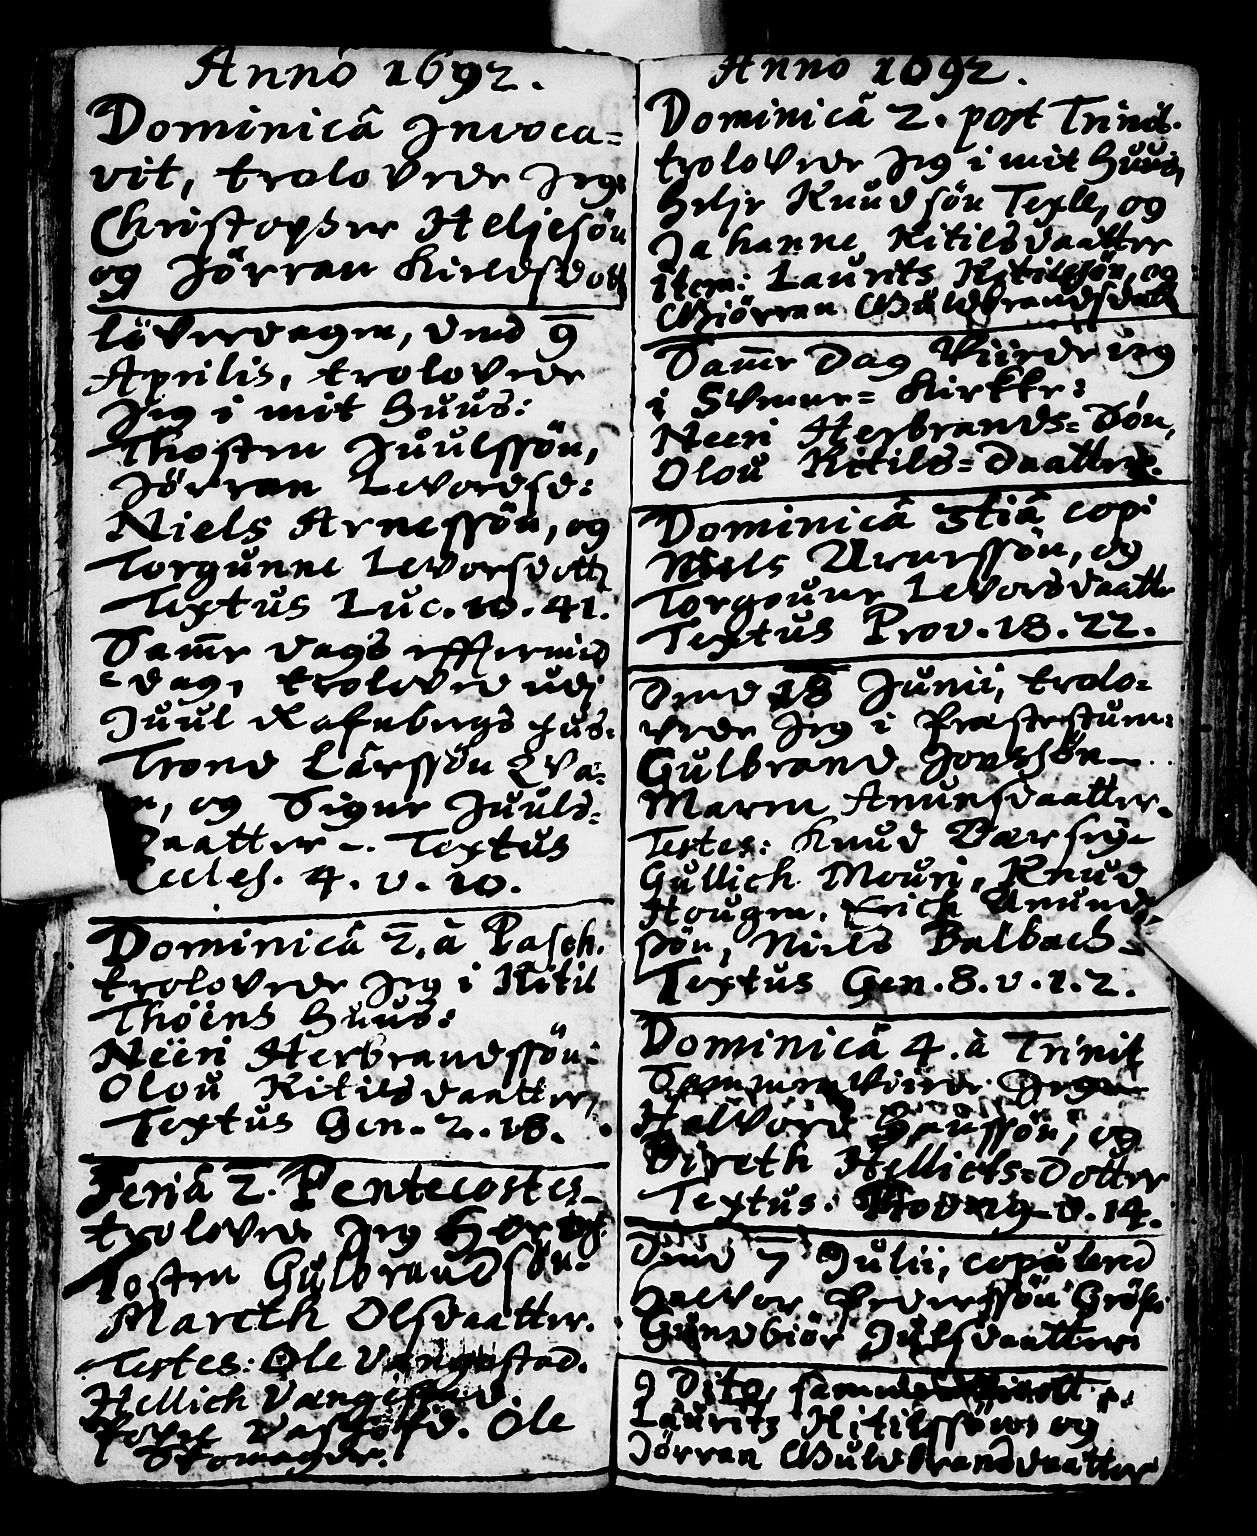 Anno 1692.
Dominicâ Invoca=
vit, trolovede Jeg
Christopher Heljesön
og Jörran Kieldsdott
löverdagen, dend 9
Aprilis, trolovede
Jeg i mit Huus:
Thosten Juulssön,
Jörran Levordsd:
Niels Arnessön, og
Torgunne Levorsdott
Textus Luc. 10. 41.
Samme dags effermid
=dag, troloved udj
Juul Rafnbergs hus:
Trond Lårssön
og Signe Juuls=
daatter -. Textus
Eccles. 4. v. 10.
Dominicâ 2. à Pasch.
trolovede Jeg i Kitil
Thöens Huus:
Neëri Herbrandssön:
Olou Kitilsdaatter,
Textus Gen. 2. 18.
Feriâ 2. Pentecostes
trolovede Jeg
Tosten Gulbrandsön-
Mareth Olsdaatter.
Testes: Ole Vangestad.
Hellich Vangestad
Ole
Skomager.
Anno 1692.
Dominicâ 2. post Trinit.
trolovede Jeg i mit Huus,
Helje Knudsön Texle, og
Johanne Kitilsdaatter
item: Laurits Kitilssön, og
Giörran Guldbrandsdatt
Samme Dag Viede jeg
i Svenne= Kirkke:
Neeri Herbrands= Sön,
Olou Kitils= Daatter.
Dominicâ 3tiâ cop:
Niels Arnessön, og
Torgoune Levorsdaatte
Textus Prov. 18. 22.
Dend 18 Junii, trolo=
vede Jeg i Præstestuen:
Gulbrand Jonssön-
Maren Anunsdaatter.
Testes: Knud Bærsöy-
Gullich Mouri, Knud
Hougen, Erich Amund
ssön, Niels Balbach-
Textus Gen. 8. v. 1. 2.
Dominicâ 4. à Trinit
Sammenviede Jeg
Halvord Hanssön, og
Bireth Hellichs= Dotter
Textus: v. 14.
Dend 7 Julii, copulered
Halvor Pederssön
Gundbiör Julsdaatter.
9 Dito, sammen
Lauritz Kitilssön og
Jörran Guldbrandsdaatter